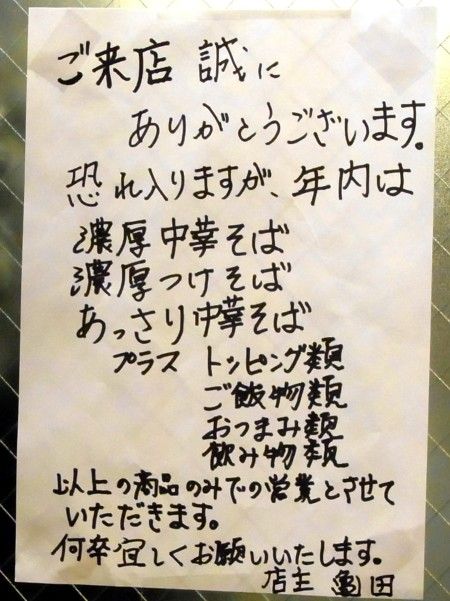 ご来店 誠に
ありがとうございます。
恐れ入りますが、年内は
濃厚中華そば
濃厚つけそば
あっさり中華そば
プラス トッピング類
ご飯物類
おつまみ類
飲み物類
以上の商品のみでの営業とさせて
いただきます。
何卒宜しくお願いいたします。
店主 亀田